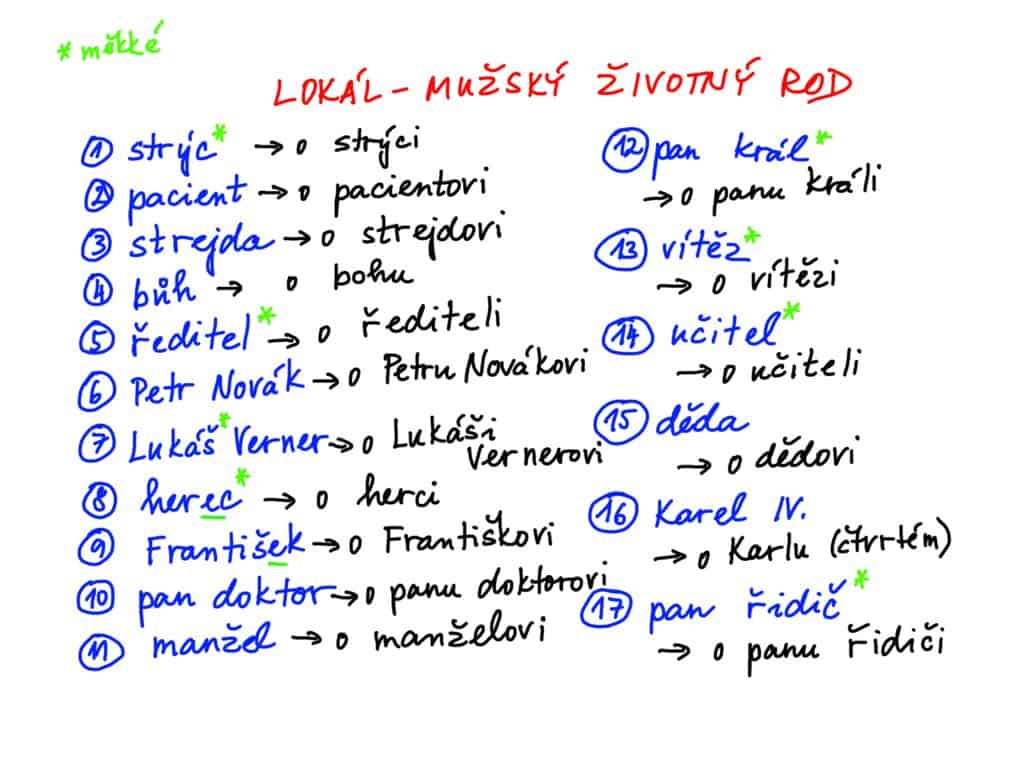 * měkké
LOKÁL - MUŽSKÝ ŽIVOTNÝ ROD
1 strýc* → o strýci
2 pacient → o pacientovi
3 strejda → o strejdovi
4 bůh → o bohu
5 ředitel* → o řediteli
6 Petr Novák → o Petru Novákovi
7 Lukáš* Verner → o Lukáši
Vernerovi
8 herec* → o herci
9 František → o Františkovi
10 pan doktor → o panu doktorovi
11 manžel → o manželovi
12 pan král*
→ o panu králi
13 vítěz*
→ o vítězi
14 učitel*
→ o učiteli
15 děda
→ o dědovi
16 Karel IV.
→ o Karlu (čtvrtém)
17 pan řidič*
→ o panu řidiči